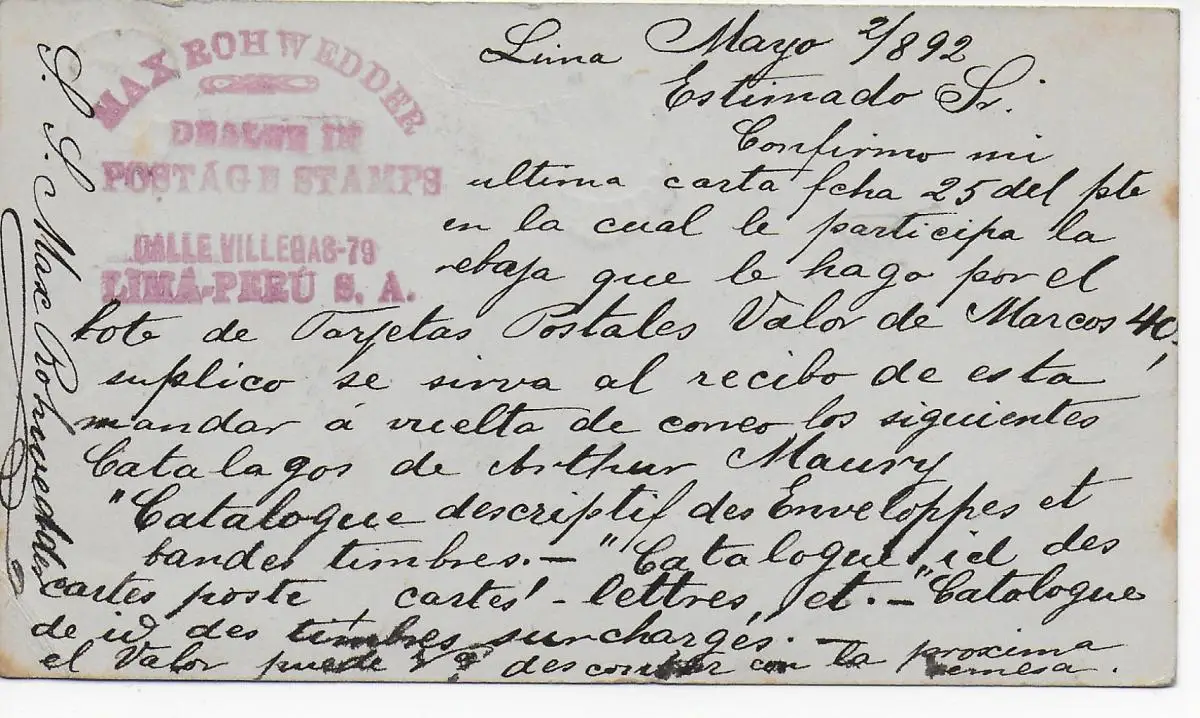 MAX ROHWEDDER
DEALER IN
POSTÁGE STAMPS
CALLE VILLEGAS-79
LIMA-PERÚ S. A.
Lima Mayo 2/892
Estimado Sr.
Confirmo mi
ultima carta fcha 25 del pte
en la cual le participa la
rebaja que le hago por el
lote de Tarjetas Postales Valor de Marcos 40,
suplico se sirva al recibo de esta
mandar á vuelta de correo los siguientes
Catalagos de Arthur Maury
"Catalogue descriptif des Enveloppes et
bandes timbres. — "Catalogue id des
cartes poste cartes - lettres, et. — "Catologue
de id des timbres surchargés. —
el Valor puede descontar con la proxima
remesa.
S. S. Max Rohwedder